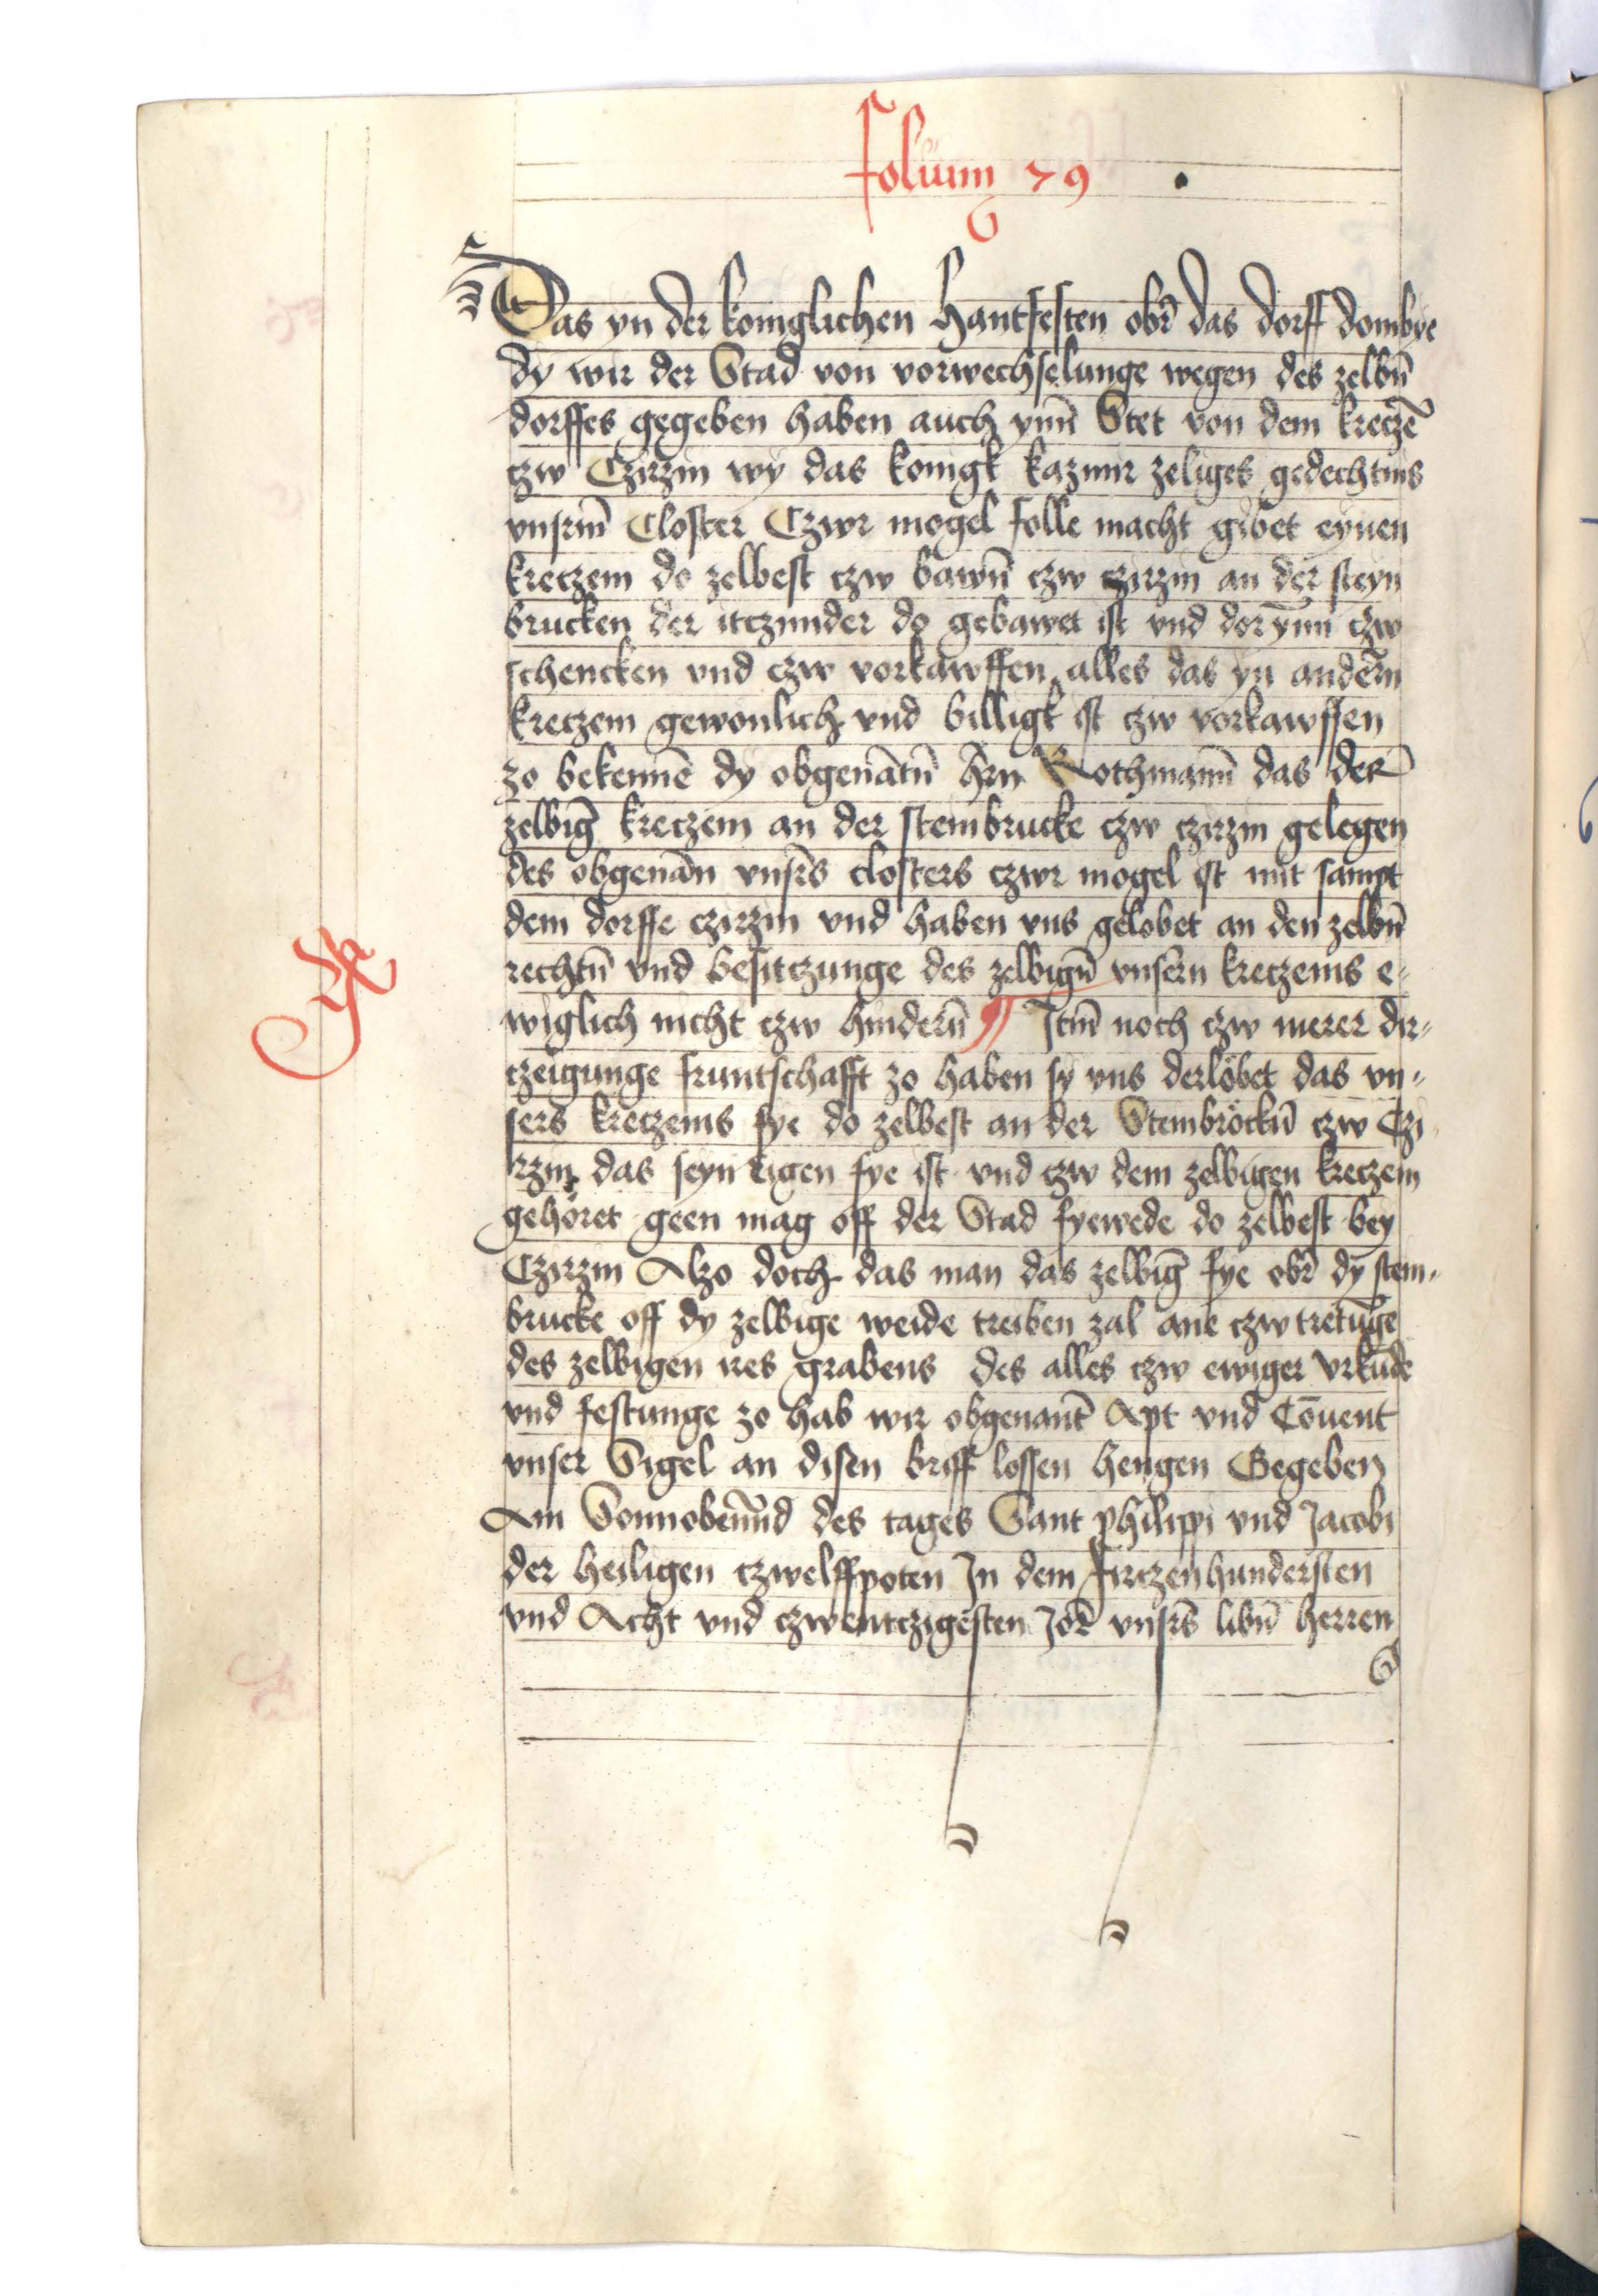 folium 79
Das yn der koniglichen hantfesten obr̄ das dorff dombye
dy wir der Stad von vorwechselunge wegen des zelbn̄
dorffes gegeben haben auch ynn̄ Stet von dem kreczē
czw Czirzin wy das konigk kazimir zeliges gedechtnis
vnsrm̄ Closter Czwr mogel folle macht gibet eynen
kreczem do zelbest czw bawn̄ czw czirzin an der steyn
brucken der itczunder do gebawet ist vnd dorynn czw
schencken vnd czw vorkawffen alles das yn andērn
kreczem gewonlich vnd billigk ist czw vorkawffen
zo bekennē dy obgenātn̄ hr̄n Rothmann̄ das der
zelbiḡ kreczem an der steinbrucke czw czirzin gelegen
des obgenān vnsrs̄ closters czwr mogel ist mit sampt
dem dorffe czirzin vnd haben vns gelobet an den zelbn̄
rechtn̄ vnd besitczunge des zelbign̄ vnsērn kreczems e-
wiglich nicht czw hindern̄ ¶ Itm̄ noch czw merer dir-
czeigunge fruntschafft zo haben sy vns derlöbet das vn-
sers kreczems fye do zelbest an der Steinbröckn̄ czw Czi
rzin das seyn eigen fye ist vnd czw dem zelbigen kreczem
gehöret geen mag off der Stad fyewede do zelbest bey
Czirzin Alzo doch das man das zelbiḡ fye obr̄ dy stein-
brucke off dy zelbige weide treiben zal ane czwtretūge
des zelbigen ires grabens des alles czw ewiger vrkūde
vnd festunge zo hab wir obgenant̄ Apt vnd Cōuent
vnser Sigel an disen briff lossen hengen Gegeben
Am Sonnobenn̄d des tages Sant philippi vnd Jacobi
der heiligen czwelffpoten In dem firczenhundersten
vnd Acht vnd czwentczigesten Jor vnsrs̄ libn̄ herren